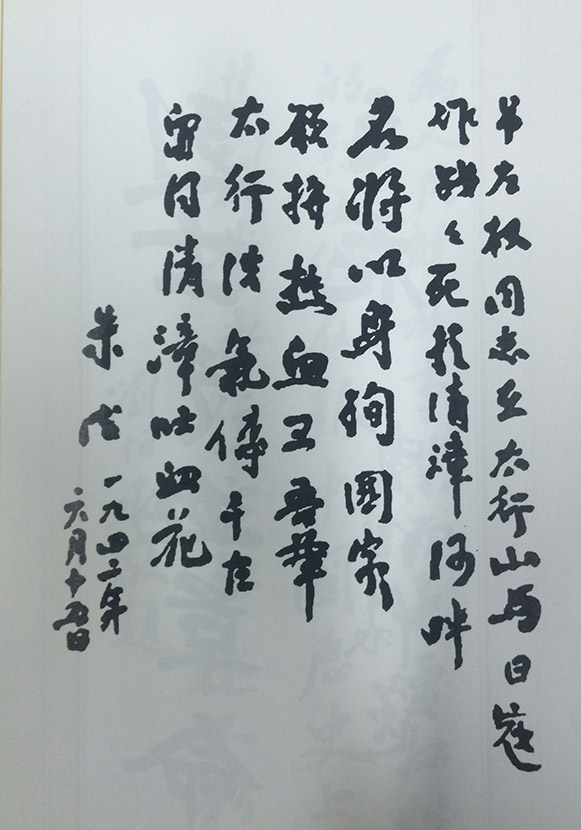 吊左权同志在太行山与日寇
作战々死於清漳河畔
名将以身殉國家
愿拼热血卫吾華
太行浩氣传千古
留得清漳吐血花
朱德 一九四二年
六月十五日